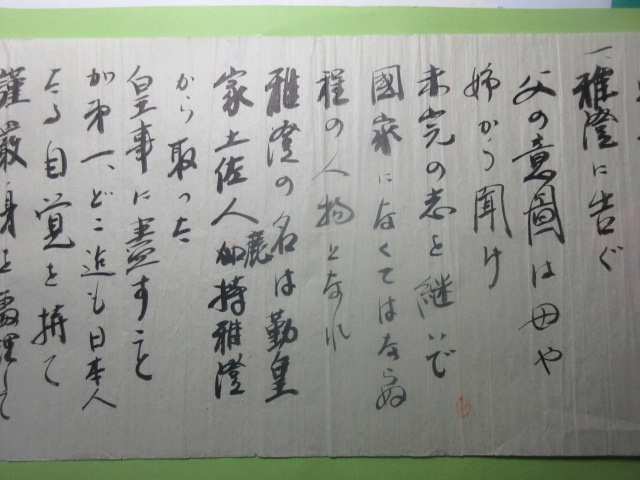 一、雅澄に告ぐ
父の意圖は母や
姉から聞け
未完の志を継いで
國家になくてはならぬ
程の人物となれ
雅澄の名は勤皇
家土佐人鹿持雅澄
から取った
皇事に盡すこと
が第一、どこ迄も日本人
たる自覚を持て
謹嚴身を處理して